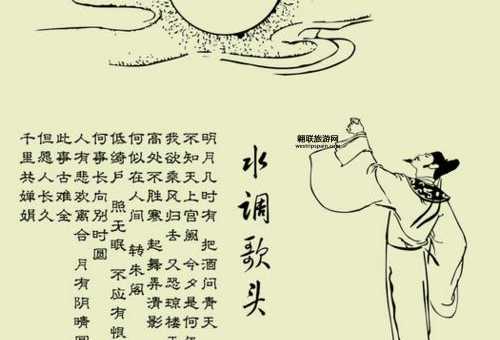 朝联旅游网
westripspain.com
水调歌头
明月几时有 把酒问青天
不知天上宫阙 今夕是何年
我欲乘风归去 又恐琼楼
高处不胜寒 起舞弄清影
何似在人间 转朱阁
低绮户 照无眠 不应有恨
何事长向别时圆
人有悲欢离合 月有阴晴圆
此事古难全
但愿人长久
千里共婵娟